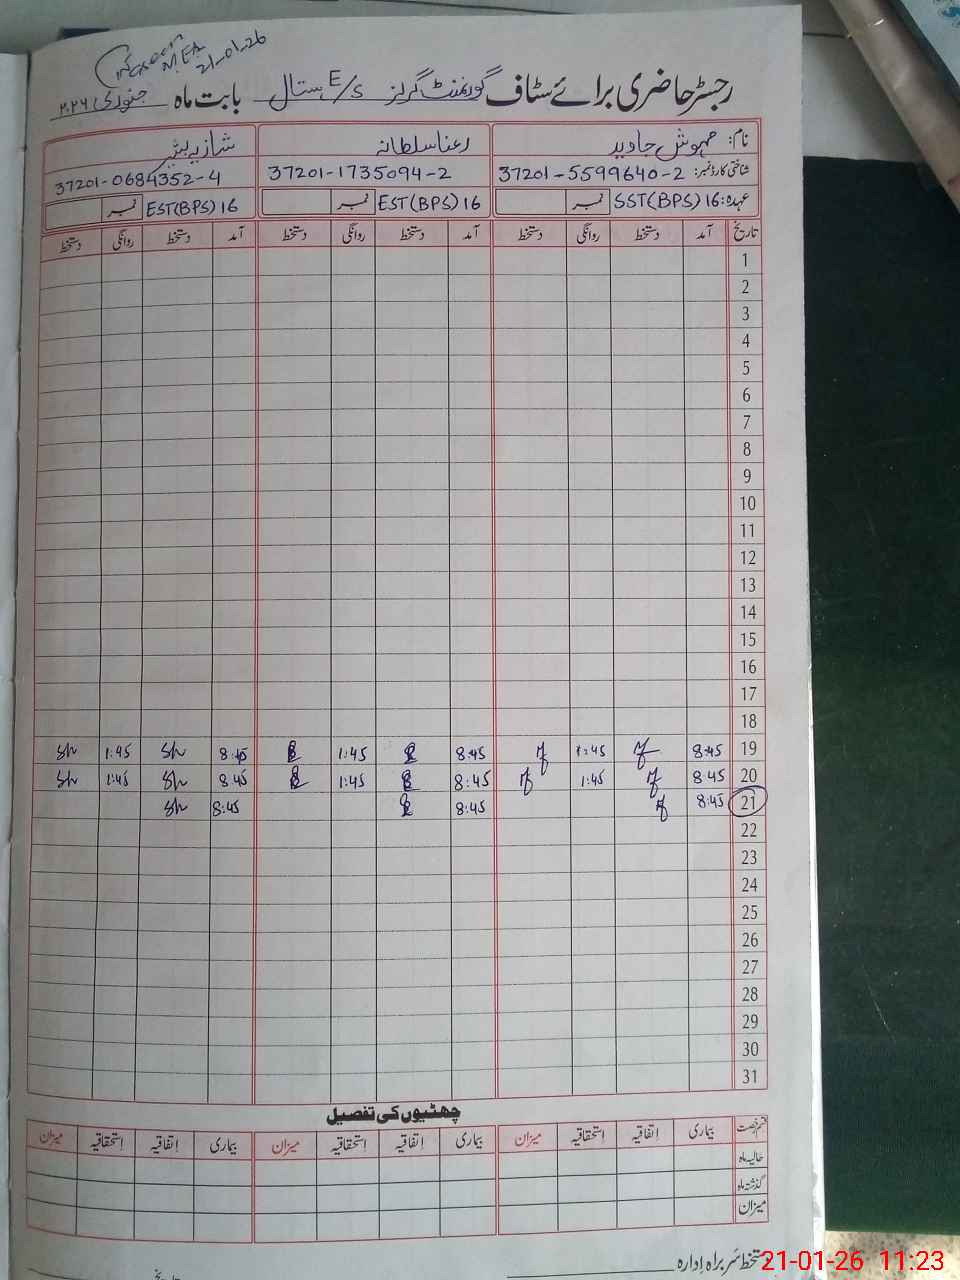 MEA
21-01-26
رجسٹر حاضری برائے سٹاف گورنمنٹ گرلز E/S ہستال بابت ماہ جنوری ۲۰۲۶
نام: مہوش جاوید رعنا سلطانہ شازیہ بشیر
شناختی کارڈ نمبر: 37201-5599640-2 37201-1735094-2 37201-0684352-4
عہدہ: SST(BPS) 16 نمبر EST(BPS) 16 نمبر EST(BPS) 16 نمبر
تاریخ آمد دستخط روانگی دستخط آمد دستخط روانگی دستخط آمد دستخط روانگی دستخط
1
2
3
4
5
6
7
8
9
10
11
12
13
14
15
16
17
18
19 8:45 1:45 8:45 1:45 8:45 Sh 1:45 Sh
20 8:45 1:45 8:45 1:45 8:45 Sh 1:45 Sh
21 8:45 8:45 8:45 Sh
22
23
24
25
26
27
28
29
30
31
چھٹیوں کی تفصیل
قسم رخصت بیماری اتفاقیہ استحقاقیہ میزان بیماری اتفاقیہ استحقاقیہ میزان بیماری اتفاقیہ استحقاقیہ میزان
حالیہ ماہ
گذشتہ ماہ
میزان
دستخط سربراہ ادارہ تاریخ
21-01-26 11:23